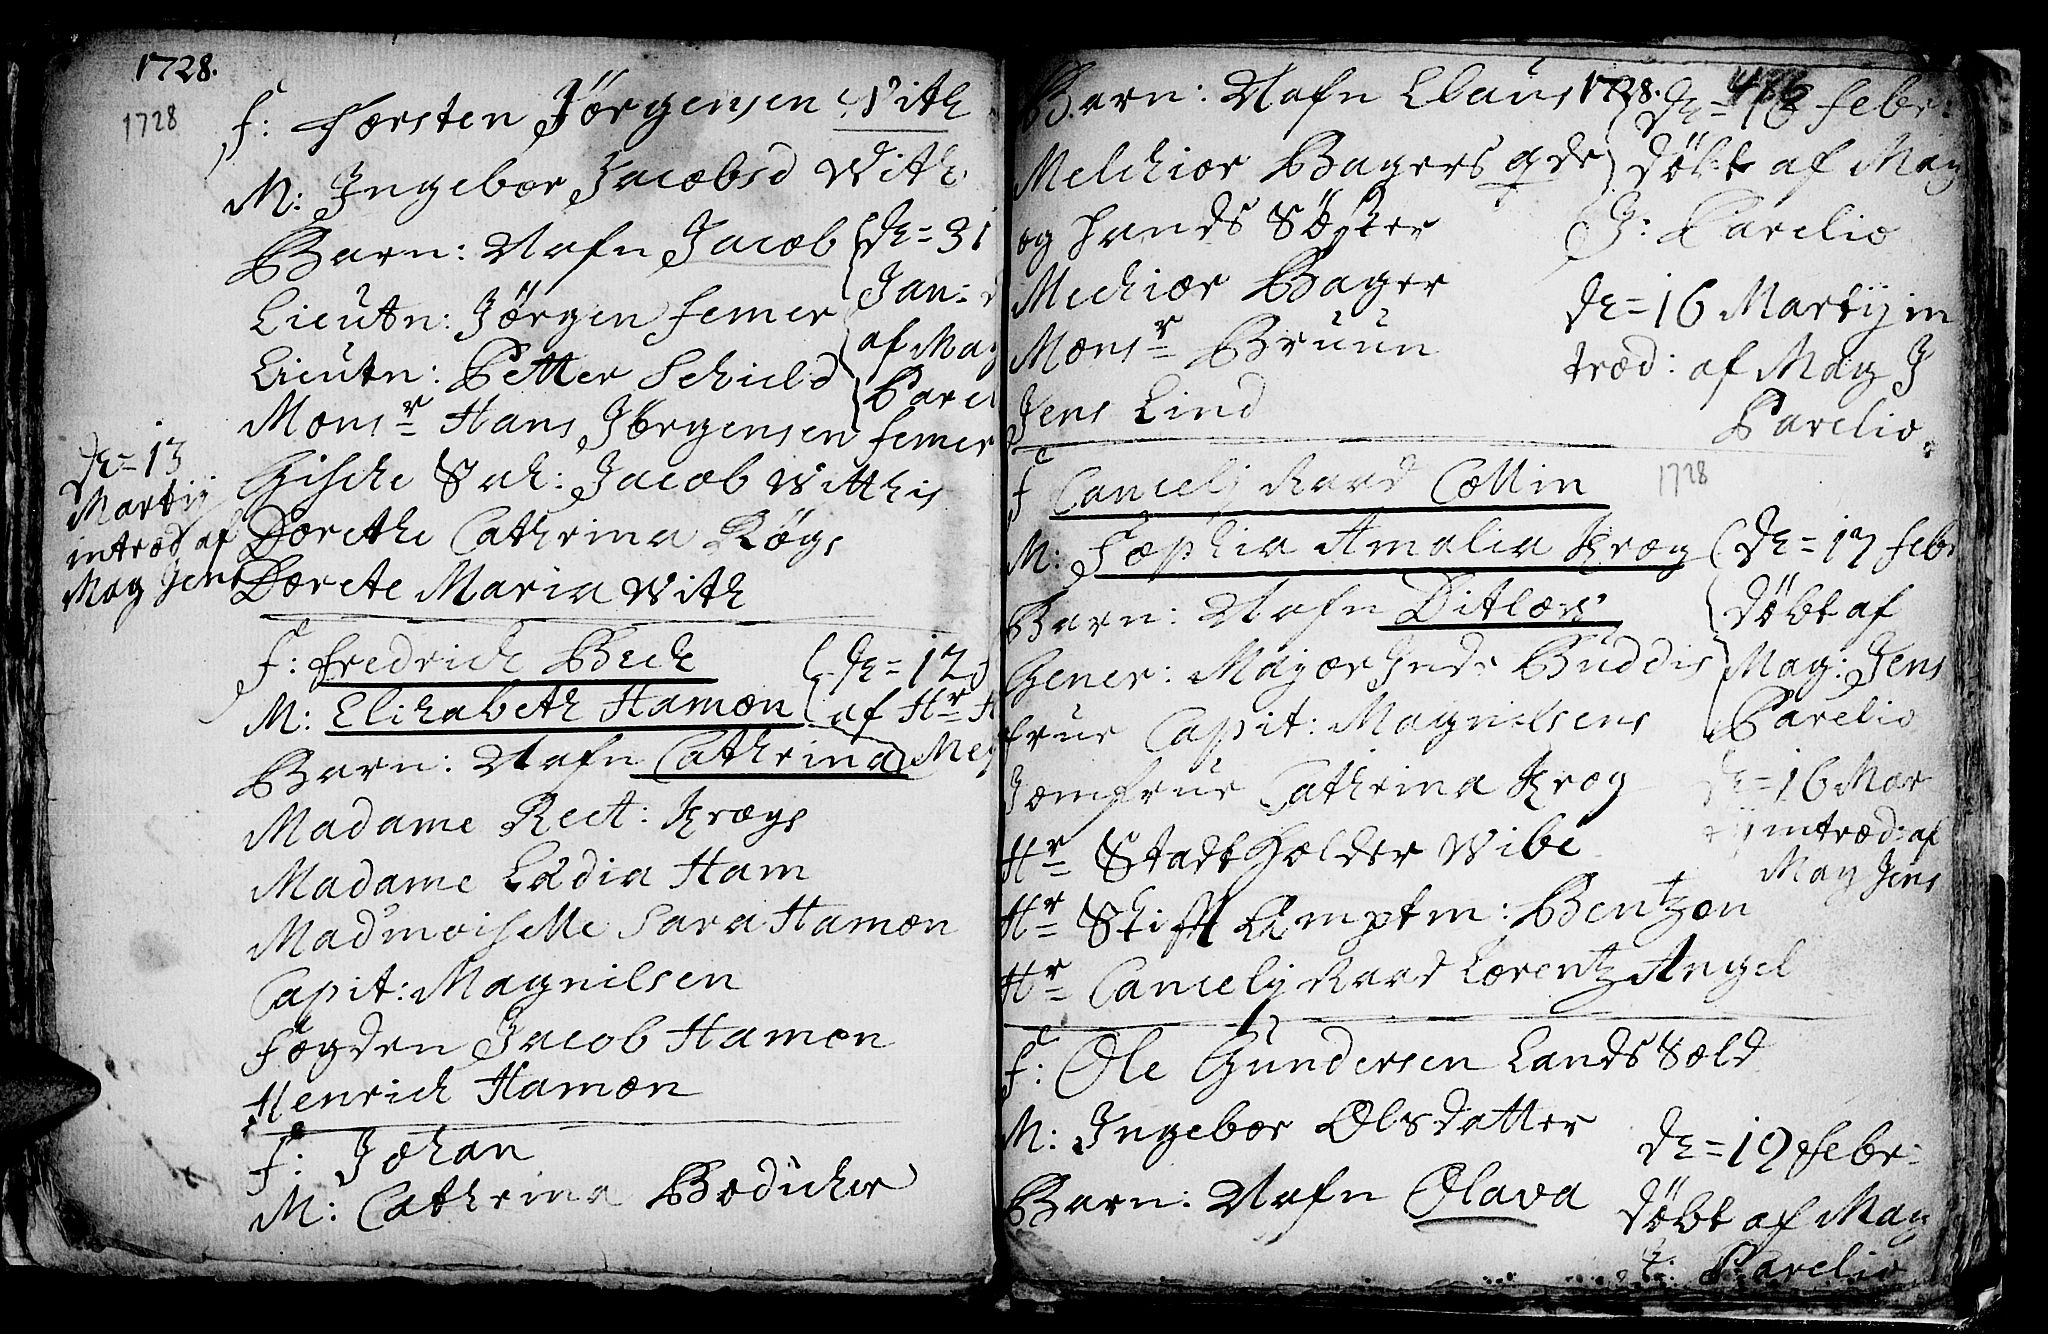 1728.
1728
F: Torsten Jörgensen With
M: Ingebor Jacobsd With
Barn: Nafn Jacob
Lieutn: Jörgen femer
Lieutn: Petter Schield
Mons r Hans Jörgensen femer
Gische Sal: Jacob Witthis
Dorethe Cathrina Rögs
Dorete Maria With
d = 31
Jan:
af Mag
Parel
d = 13
Martij
introd af
Mag Jens
F: fredrich Bech
M: Elisabeth Hamon
Barn: Nafn Cathrina
Madame Rect: Krogs
Madame Lädia Ham
Madmoiselle Sara Hamon
Capit: Magnilsen
Fogden Jacob Hamon
Henrich Hamon
d = 12
af Hr
F: Johan
M: Cathrina Bödicher
1728.
Barn: Nafn Claus
Melchior Bagers qde
og hands Söster
Mechior Bager
Mons r Bruun
Jens Lind
d = 16 febr:
döbt af Mag
J: Parelio
d = 16 Martij in
trod: af Mag J
Parelio
1728
F Cancelj Raad Collin
M: Sophia Amalia Krog
Barn: Nafn Ditlov
Gener: Major Buddis
frue Capit: Magnilsens
Jomfrue Cathrina Krog
Hr Stadtholder Wibe
Hr Stift Amptm: Bentzon
Hr Cancelj Raad Lorentz Angel
d = 17 febr
döbt af
Mag: Jens
Parelio
d = 16 Mar
tij introd: af
Mag Jens
F: Ole Gundersen Lands Sold
M: Ingebor Olsdatter
Barn: Nafn Olava
d = 19 febr:
döbt af Mag
J: Parelio